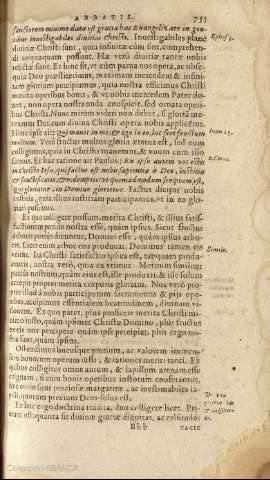 ABBATIS. 755
sanctorum minimo data est gratia hæc Euangelizare in gen-
tibus inuestigabiles diuitias Christi. Inuestigabiles plane Ephes. 3.
diuitiæ Christi sunt, quia infinitæ cùm sint, comprehen-
di nequaquam possunt. Hæ verò diuitiæ tantæ nobis
relictæ sunt. Et hinc fit, vt cùm parua nos opera, ac obse-
quia Deo præstiterimus, maximam mercedem & infini-
tam gloriam percipiamus, quia nostra efficimus Christi
merita operibus bonis, & vt nobis mercedem Pater do-
net, non opera nostra nuda conspicit, sed ornata operi-
bus Christi. Nunc mirum videri non debet, si gloria me-
tiamur Dei, cum diuina Christi opera nobis applicetur.
Hinc ipse ait: Qui manet in me, & ego in eo, hic fert fructum Ioan. 15.
multum. Verè fructus multus gloria æterna est, sed eum
colligimus, quia in Christo manemus, & vnum cum illo
sumus. Et hac ratione ait Paulus: Ex ipso autem vos estis 1. Cor. 1.
in Christo Iesu, qui factus est nobis sapientia à Deo, iustitia
& sanctificatio, & redemptio: vt quemadmodum scriptum est,
qui gloriatur, in Domino glorietur. Factus dicitur nobis
iustitia, quia illius iustitiam participamus, vt in eo glo-
riari possimus.
Et quo colligere possum, merita Christi, & illius satis-
factionem potiùs nostra esse, quàm ipsius. Sicut fructus
arboris potiùs dicuntur, Domini esse, quàm ipsius arbo-
ris. Licet enim arbor eos producat, Dominus tamen eis
vtitur. Ita Christi satisfactio ipsius est, tanquam produ-
centis, nostra verò, quia ea vtimur. Meritum similiter
potiùs nostrum, quàm eius est, ille produxit, & ille solum
accepit propter merita corporis gloriam. Nos verò pro-
pter illud à nobis participatum sacramentis & pijs ope-
ribus, accipimus essentialem beatitudinem, diuinam vi-
sionem. Ex quo patet, plus proficere merita Christi mi-
nisto iusto, quàm ipsimet Christo Domino, plus fructus
vtris eos percipere quàm ipse percipiat, plus ergo no-
stra sunt, quàm ipsius.
Ostendimus hucusque pretium, ac valorem immen-
sum bonorum operum iusti, & rationes meriti tanti. Ex
quibus colligitur omne aurum, & lapillum arenam esse
exiguam, si cum bonis operibus iustorum conferantur,
hæc enim sunt preciosæ margaritæ, ac inestimabiles la-
pilli, quorum precium Deus solus est.
Et hac ergo doctrina tradita, duo colligere licet. Pri-
mum est, quanta sit diuinæ gratiæ dignitas, ac celsitudo:
Bbb
Colección ABANCA